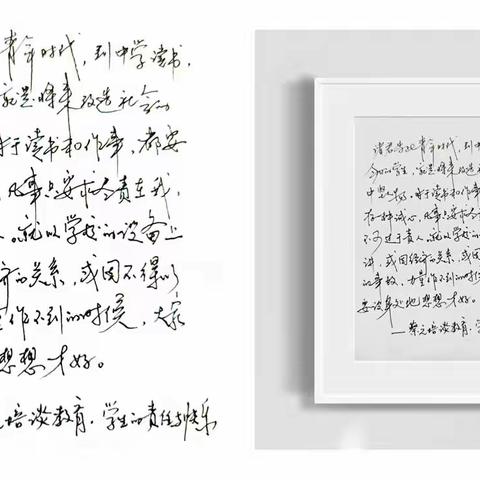 青年时代，到中学读书，
就是将来改造社会的
于读书和作事，都要
，凡事只要求全责在我，
人。就以学校的设备上
济的关系，或因不得以
量作不到的时候，大家
想想才好。
培谈教育．学生的责任与快乐
诸君当此青年时代，到中
今的学生，就是将来改造社
中坚人物，对于读书和作事
存一种诚心，凡事只要求全责
不可过于责人。就以学校的
讲，或因经济的关系，或因不
的事故，力量作不到的时候
要设身处地想想才好。
—蔡元培谈教育．学